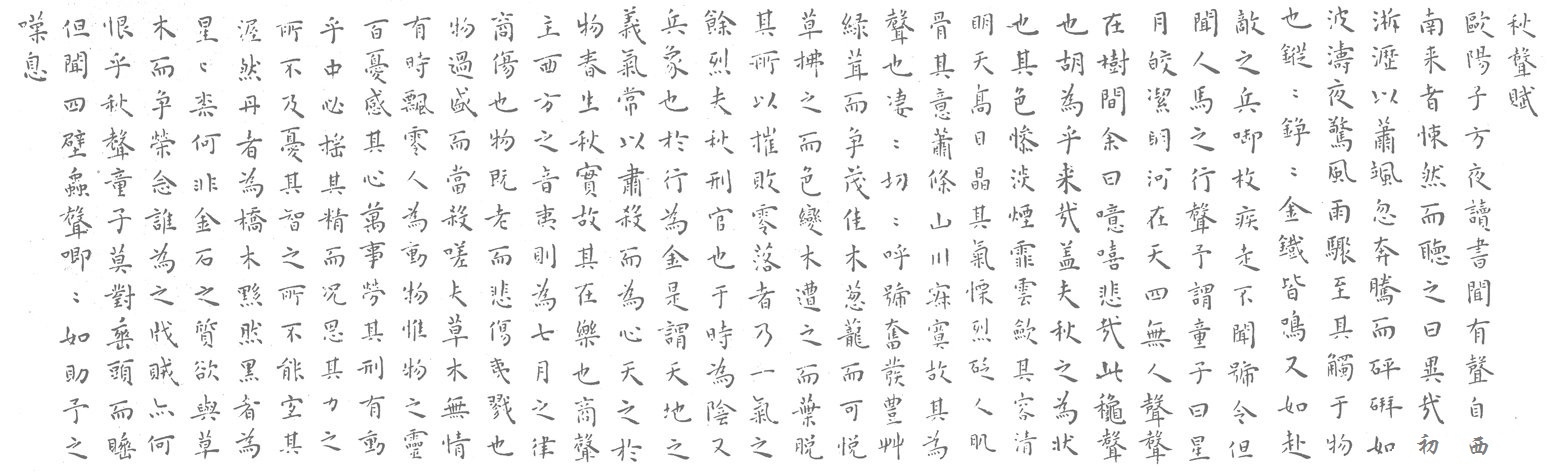 秋聲賦
歐陽子方夜讀書聞有聲自西
南来者悚然而聽之曰異哉初
淅瀝以蕭颯忽奔騰而砰硑如
波濤夜驚風雨驟至其觸于物
也鏦〻錚〻金鐵皆鳴又如赴
敵之兵啣枚疾走不聞號令但
聞人馬之行聲予謂童子曰星
月皎潔明河在天四無人聲聲
在樹間余曰噫嘻悲哉此穐聲
也胡為乎来哉盖夫秋之為状
也其色慘淡煙霏雲歛其容清
明天高日晶其氣慄烈砭人肌
骨其意蕭條山川寂寞故其為
聲也凄〻切〻呼號奮發豐艸
緑茸而争茂佳木葱蘢而可悦
草拂之而色變木遭之而葉脱
其所以摧敗零落者乃一氣之
餘烈夫秋刑官也于時為陰又
兵象也於行為金是謂天地之
義氣常以肅殺而為心天之於
物春生秋實故其在樂也商聲
主西方之音夷則為七月之律
商傷也物既老而悲傷夷戮也
物過盛而當殺嗟夫草木無情
有時飄零人為動物惟物之靈
百憂感其心萬事勞其刑有動
乎中必揺其精而况思其力之
所不及憂其智之所不能宜其
渥然丹者為橋木黟然黒者為
星〻柰何非金石之質欲與草
木而争榮念誰為之戕賊亦何
恨乎秋聲童子莫對垂頭而睡
但聞四壁蟲聲唧〻如助予之
嘆息